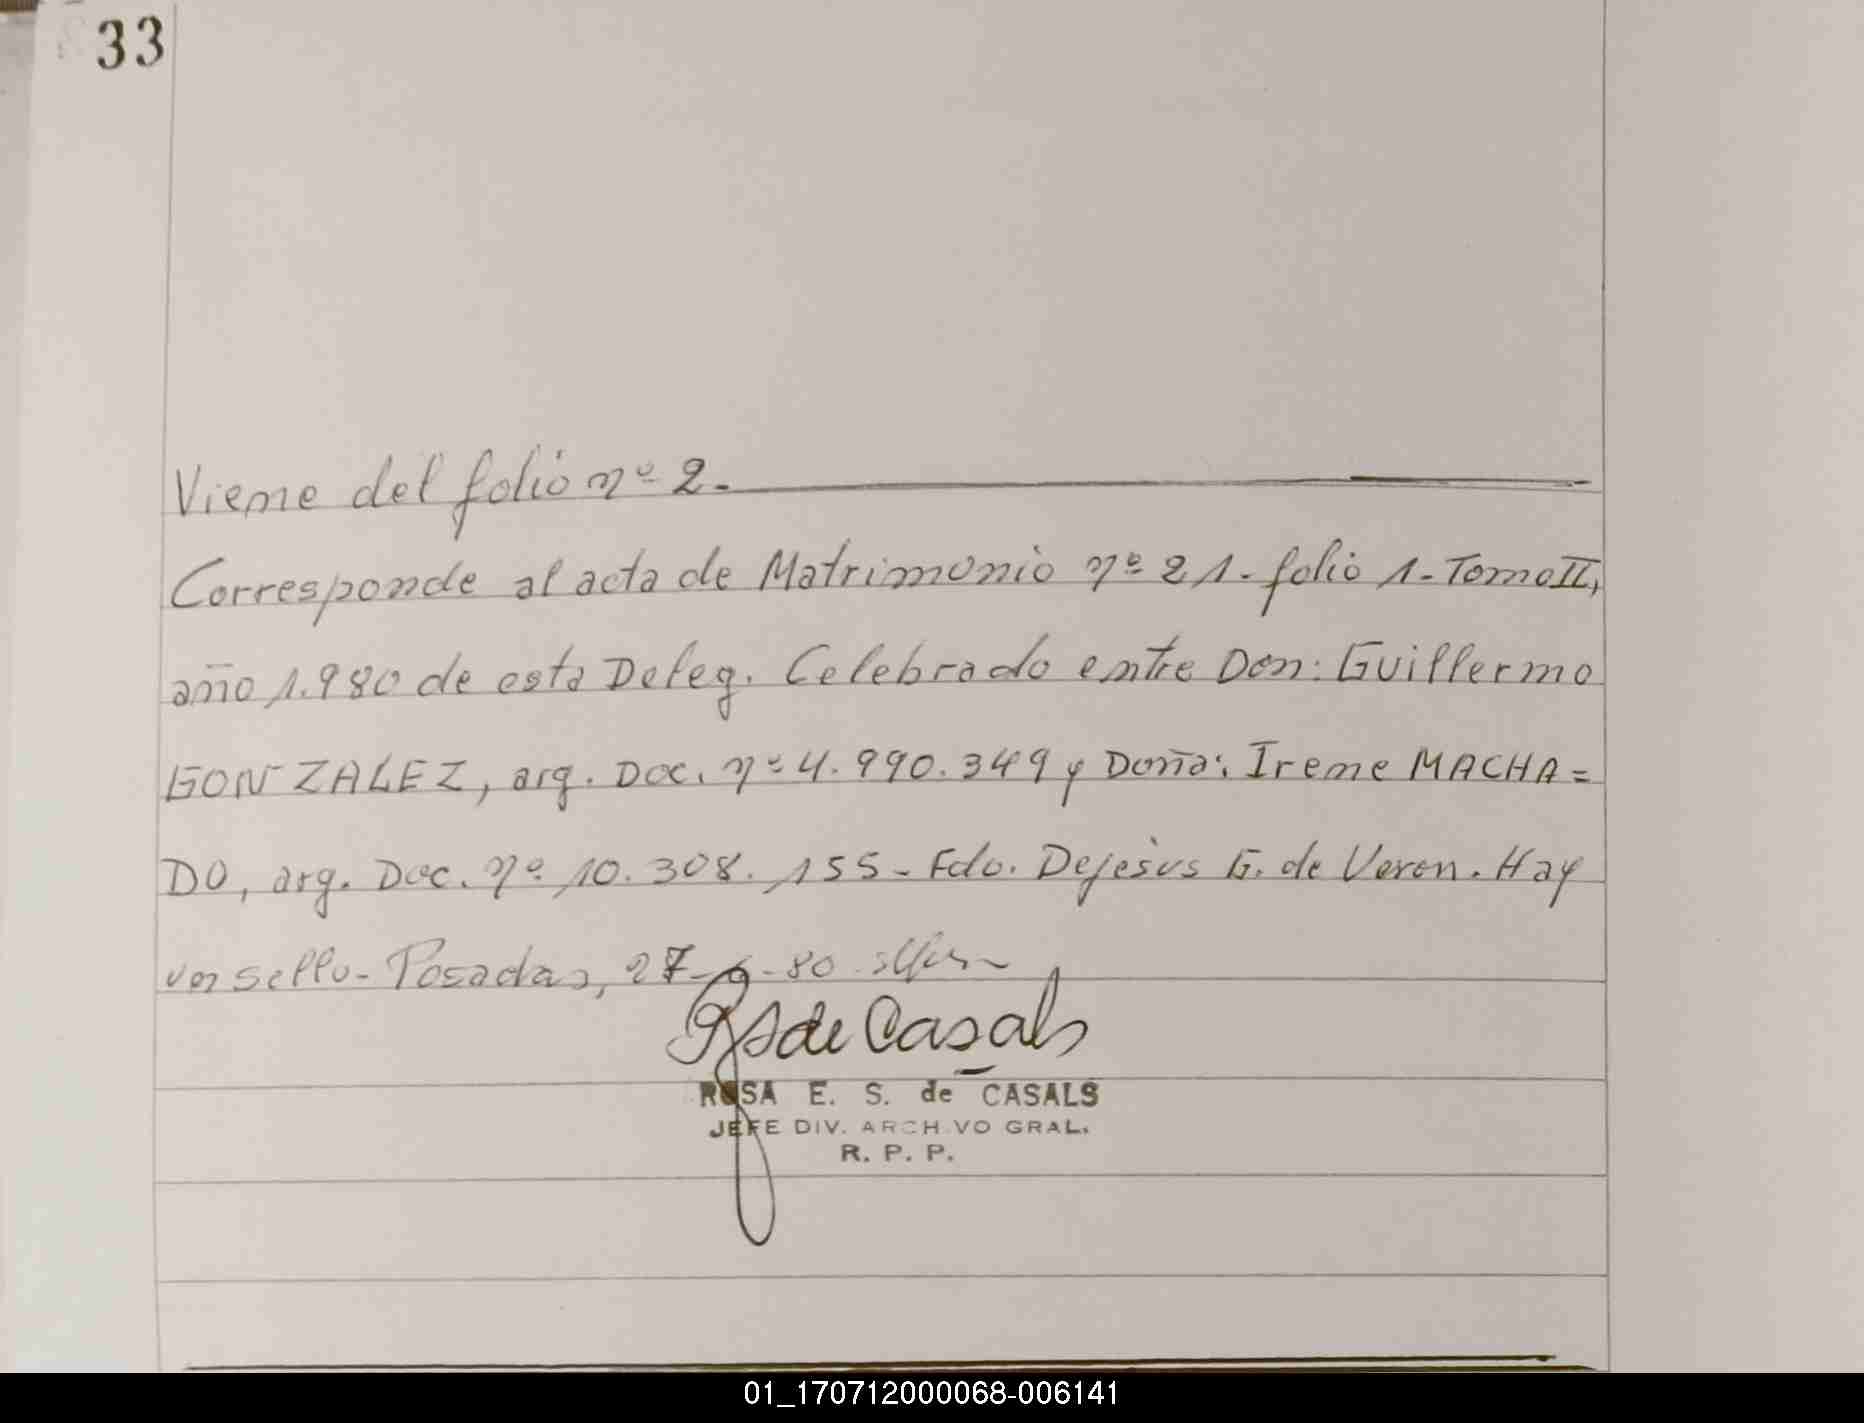 33
Viene del folio nº 2.
Corresponde al acta de Matrimonio nº 21. folio 1. Tomo II,
año 1.980 de esta Deleg. Celebrado entre Don: Guillermo
GONZALEZ, arg. Doc. nº 4.990.349 y Doña: Irene MACHA=
DO, arg. Doc. nº 10.308.155- Fdo. Dejesús G. de Veron. Hay
un sello- Posadas, 27-6-80.
RS de Casals
ROSA E. S. de CASALS
JEFE DIV. ARCHIVO GRAL.
R. P. P.
01_170712000068-006141